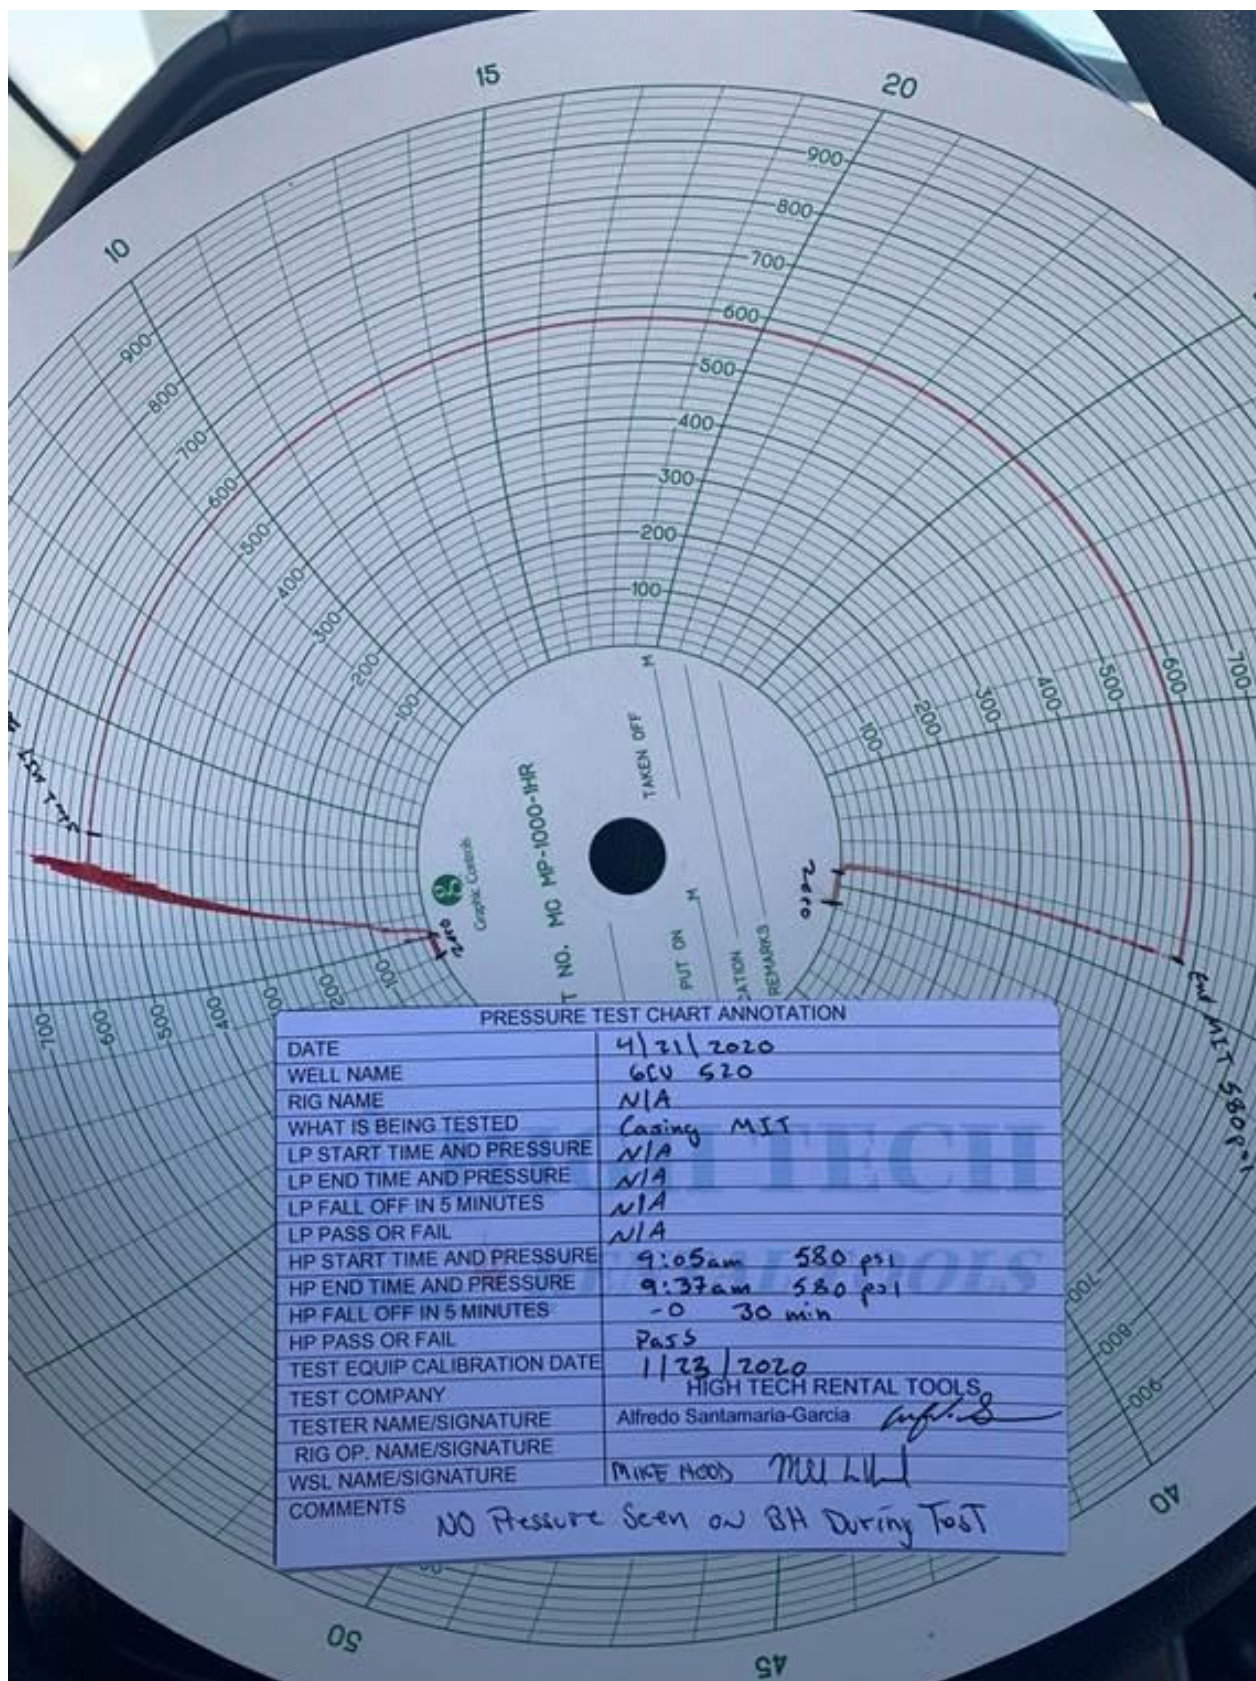 15
20
10
900
800
700
600
500
400
300
200
100
900
800
700
600
500
400
300
200
100
700
600
500
400
300
200
100
Start MIT
zero
Graphic Controls
MC MP-1000-1HR
T NO.
TAKEN OFF
M
PUT ON
M
CATION
REMARKS
zero
End MIT 580psi
700
600
500
400
300
200
100
PRESSURE TEST CHART ANNOTATION
DATE 4/21/2020
WELL NAME GCU 520
RIG NAME N/A
WHAT IS BEING TESTED Casing MIT
LP START TIME AND PRESSURE N/A
LP END TIME AND PRESSURE N/A
LP FALL OFF IN 5 MINUTES N/A
LP PASS OR FAIL N/A
HP START TIME AND PRESSURE 9:05am 580 psi
HP END TIME AND PRESSURE 9:37am 580 psi
HP FALL OFF IN 5 MINUTES -0 30 min
HP PASS OR FAIL Pass
TEST EQUIP CALIBRATION DATE 1/23/2020
TEST COMPANY HIGH TECH RENTAL TOOLS
TESTER NAME/SIGNATURE Alfredo Santamaria-Garcia
RIG OP. NAME/SIGNATURE
WSL NAME/SIGNATURE MIKE HOOD
COMMENTS NO Pressure Seen on BH During Test
700
800
900
40
50
45